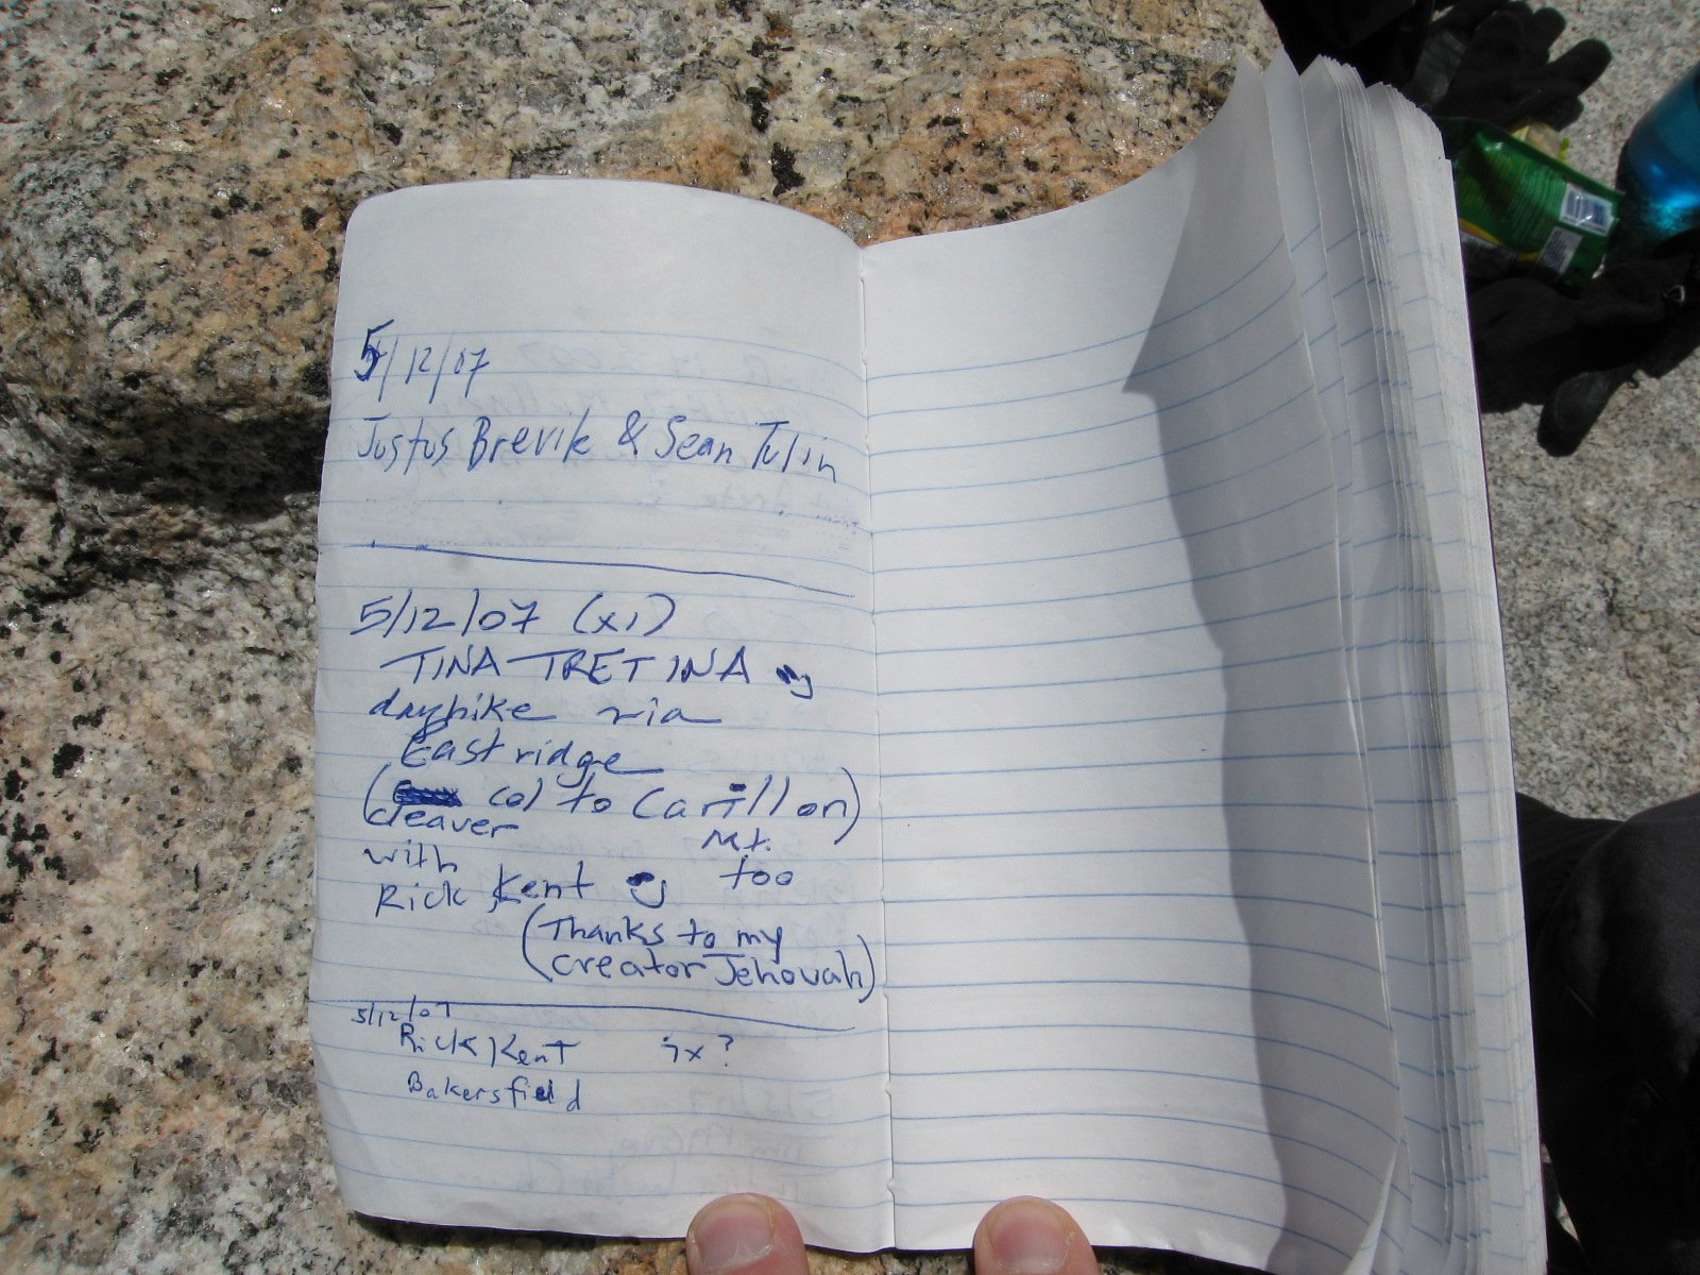 5/12/07
Justus Brevik & Sean Tulin
5/12/07 (x1)
TINA TRETINA
dayhike via
East ridge
(col to Carillon)
cleaver Mt.
with too
Rick Kent
(Thanks to my
creator Jehovah)
5/12/07
Rick Kent ?
Bakersfield